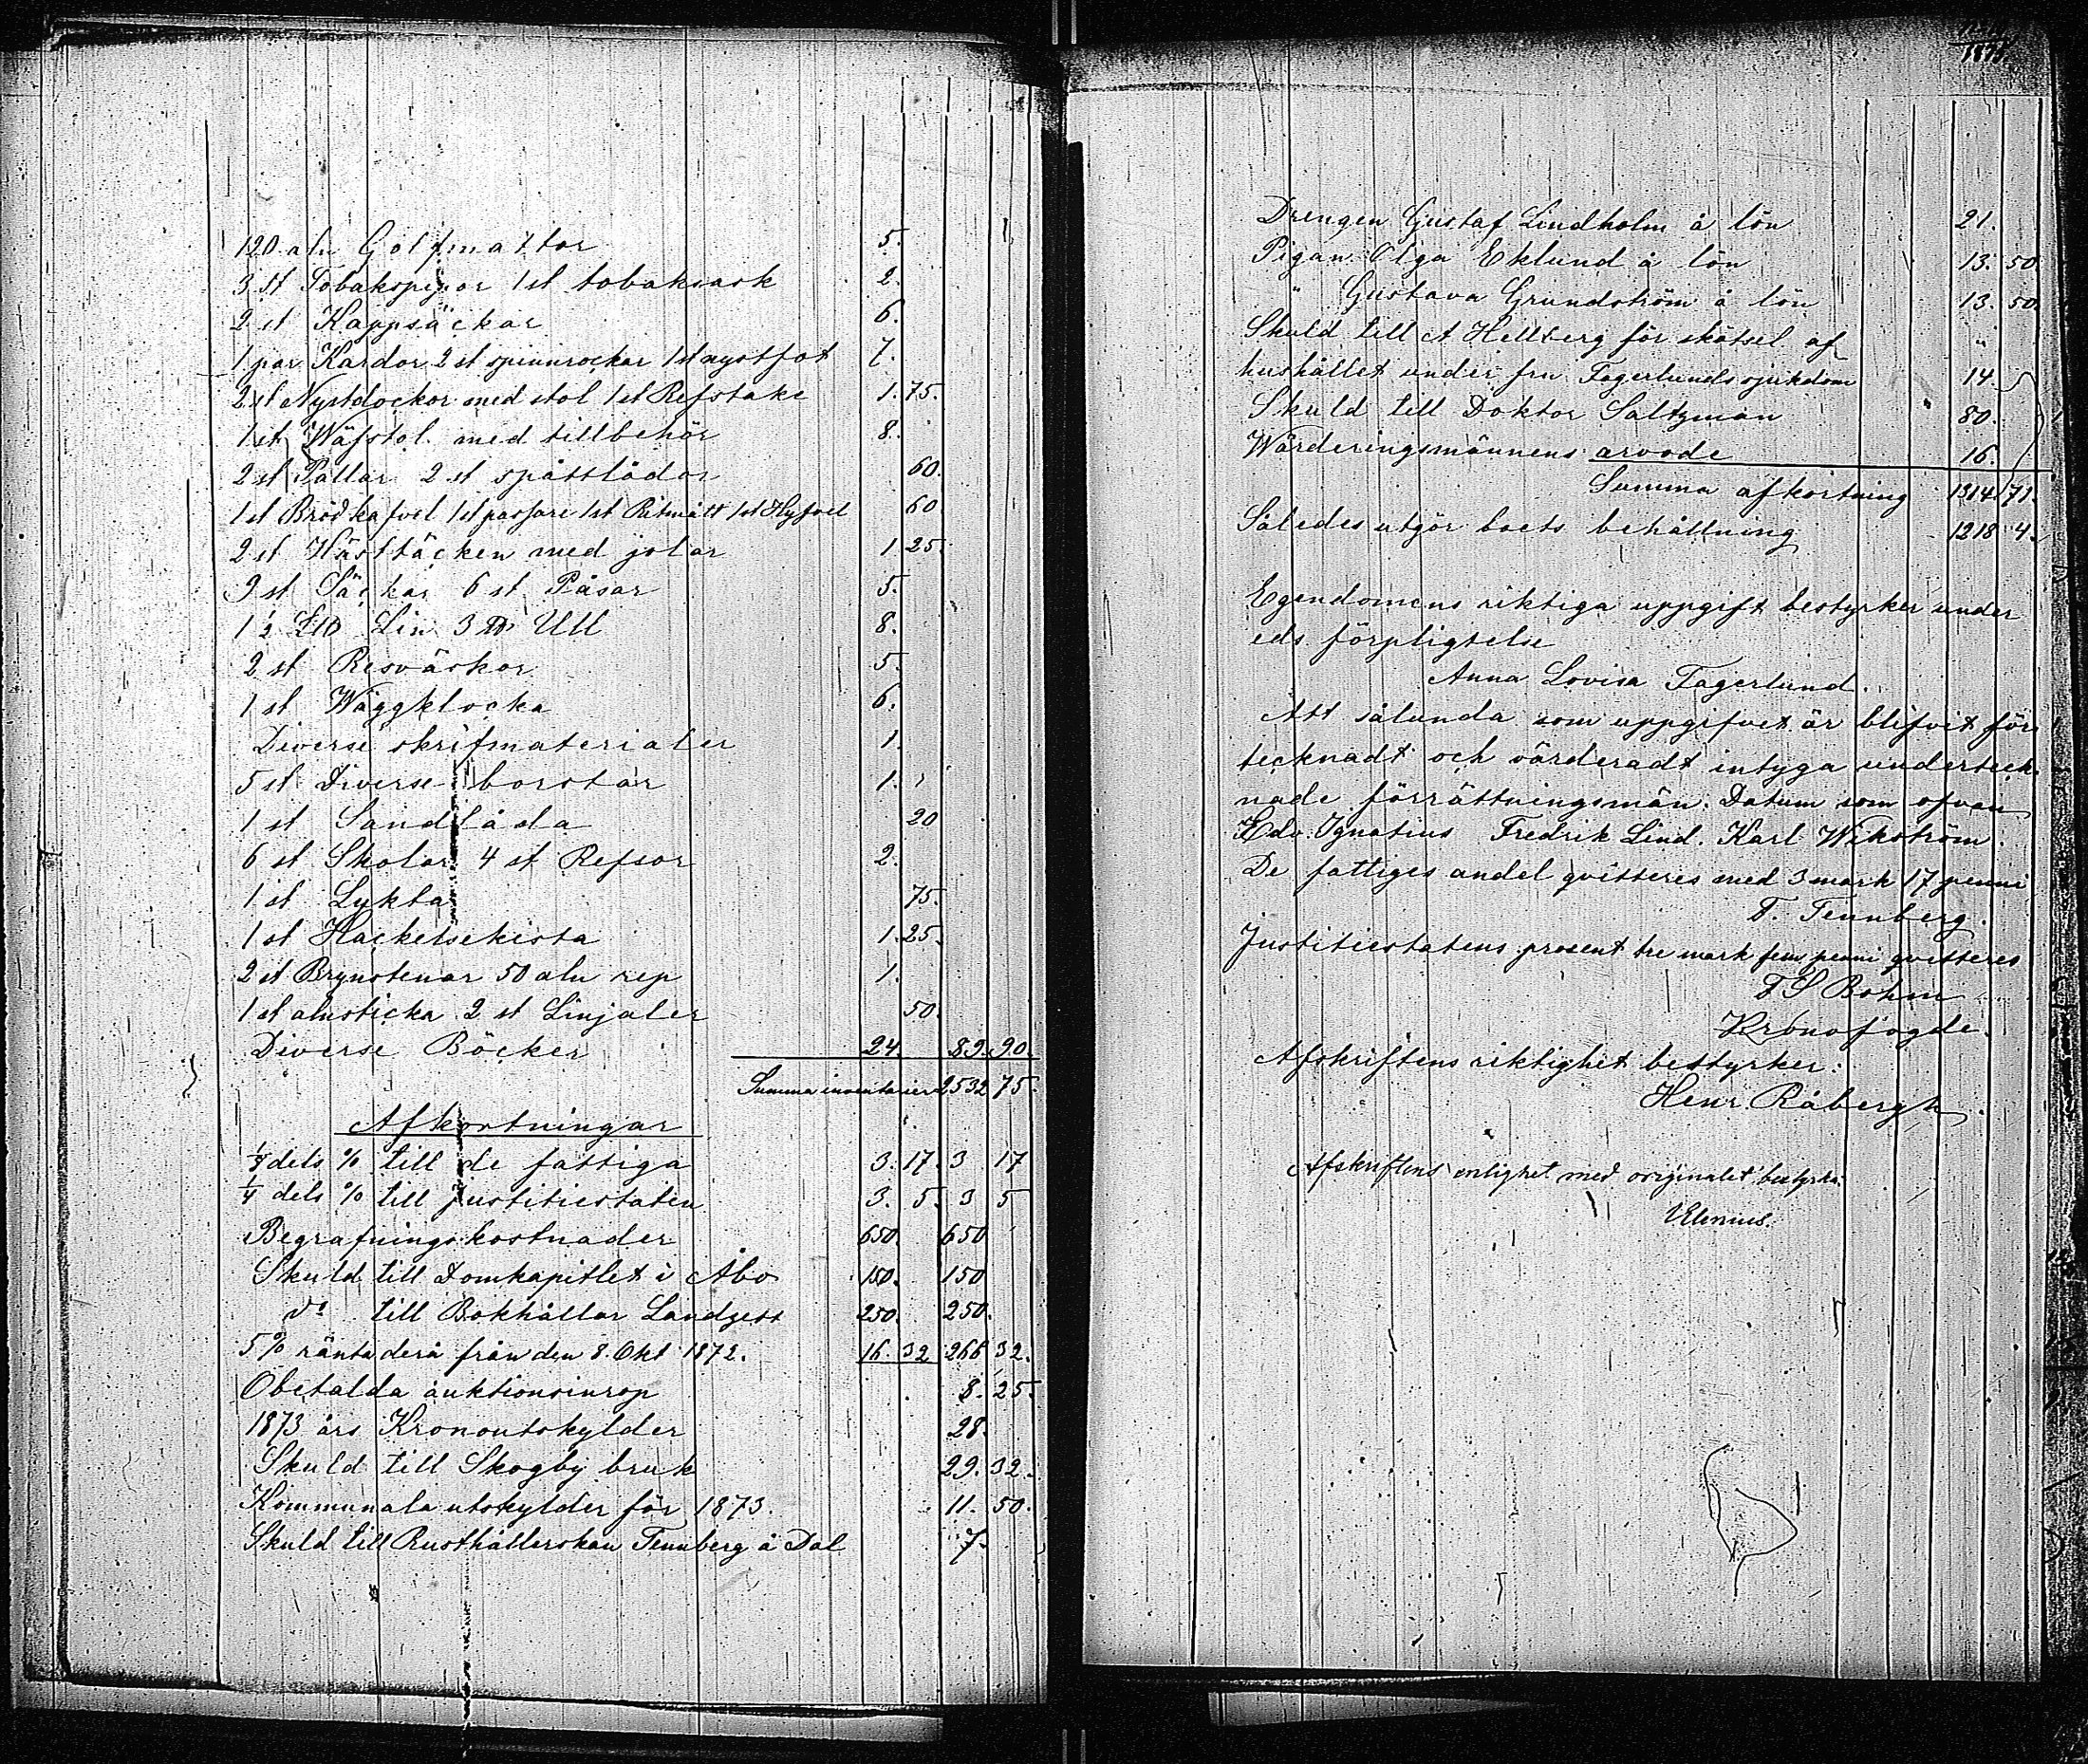 120 aln Golfmattor 5.
3 st Tobakspipor 1 st tobaksask 2.
2 st Kappsäckar 6.
1 par Kardor 2 st spinnrockar 1 st nystfot 7.
2 st Nystdockor med stol 1 st Refstake 1. 75.
1 st Wäfstol med tillbehör 8.
2 st Pallar 2 st spåttlådor 60.
1 st Brödkafvel 1 st passare 1 st Ritmått 1 st Hyfvel 60
2 st Hästtäcken med jolar 1. 25.
9 st Säckar 6 st Påsar 5.
1 1/2 L℔ Lin 3 ℔ Ull 8.
2 st Resväskor 5.
1 st Wäggklocka 6.
Diverse skrifmaterialer 1.
5 st Diverse borstar 1.
1 st Sandlåda 20
6 st Skolar 4 st Refsor 2.
1 st Lykta 75.
1 st Hackelsekista 1. 25.
2 st Brynstenar 50 aln rep 1.
1 st alnsticka 2 st Linjaler 50.
Diverse Böcker 24. 89. 90.
Summa inventarier 2532 75.
Afkortningar
1/8 dels % till de fattiga 3. 17. 3 17
1/4 dels % till justitiestaten 3. 5. 3 5
Begrafningskostnader 650. 650
Skuld till Domkapitlet i Åbo 150. 150
d:o till Bokhållar Landgett 250. 250.
5 % ränta derå från den 8. Okt 1872. 16. 32 266 32.
Obetalda auktionsinrop 8. 25.
1873 års Kronoutskylder 28.
Skuld till Skogby bruk 29. 32.
Kommunala utskylder för 1873. 11. 50.
Skuld till Rusthållerskan Tennberg å Dal 7.
1873.
Drengen Gustaf Lindholm å lön 21.
Pigan Olga Eklund å lön 13. 50
" Gustava Grundström å lön 13. 50.
Skuld till A Hellberg för skötsel af "
hushållet under fru Fagerlunds sjukdom 14
Skuld till Doktor Saltzman 80.
Wärderingsmännens arvode 16.
Summa afkortning 1314 71.
Således utgör boets behållning 1218 4.
Egendomens riktiga uppgift bestyrker under
eds förpligtelse
Anna Lovisa Fagerlund.
Att sålunda som uppgifvet är blifvit för
tecknadt och värderadt intyga underteck-
nade förrättningsmän. Datum som ofvan
Edv. Ignatius Fredrik Lind. Karl Wikström.
De fattiges andel qvitteres med 3 mark 17 penni
F. Tennberg.
Justitiestatens procent tre mark fem penni qvitteres
F S Bohm
Kronofogde.
Afskriftens riktighet bestyrker:
Henr. Råbergh.
Afskriftens enlighet med originalet bestyrka:
Elenius.